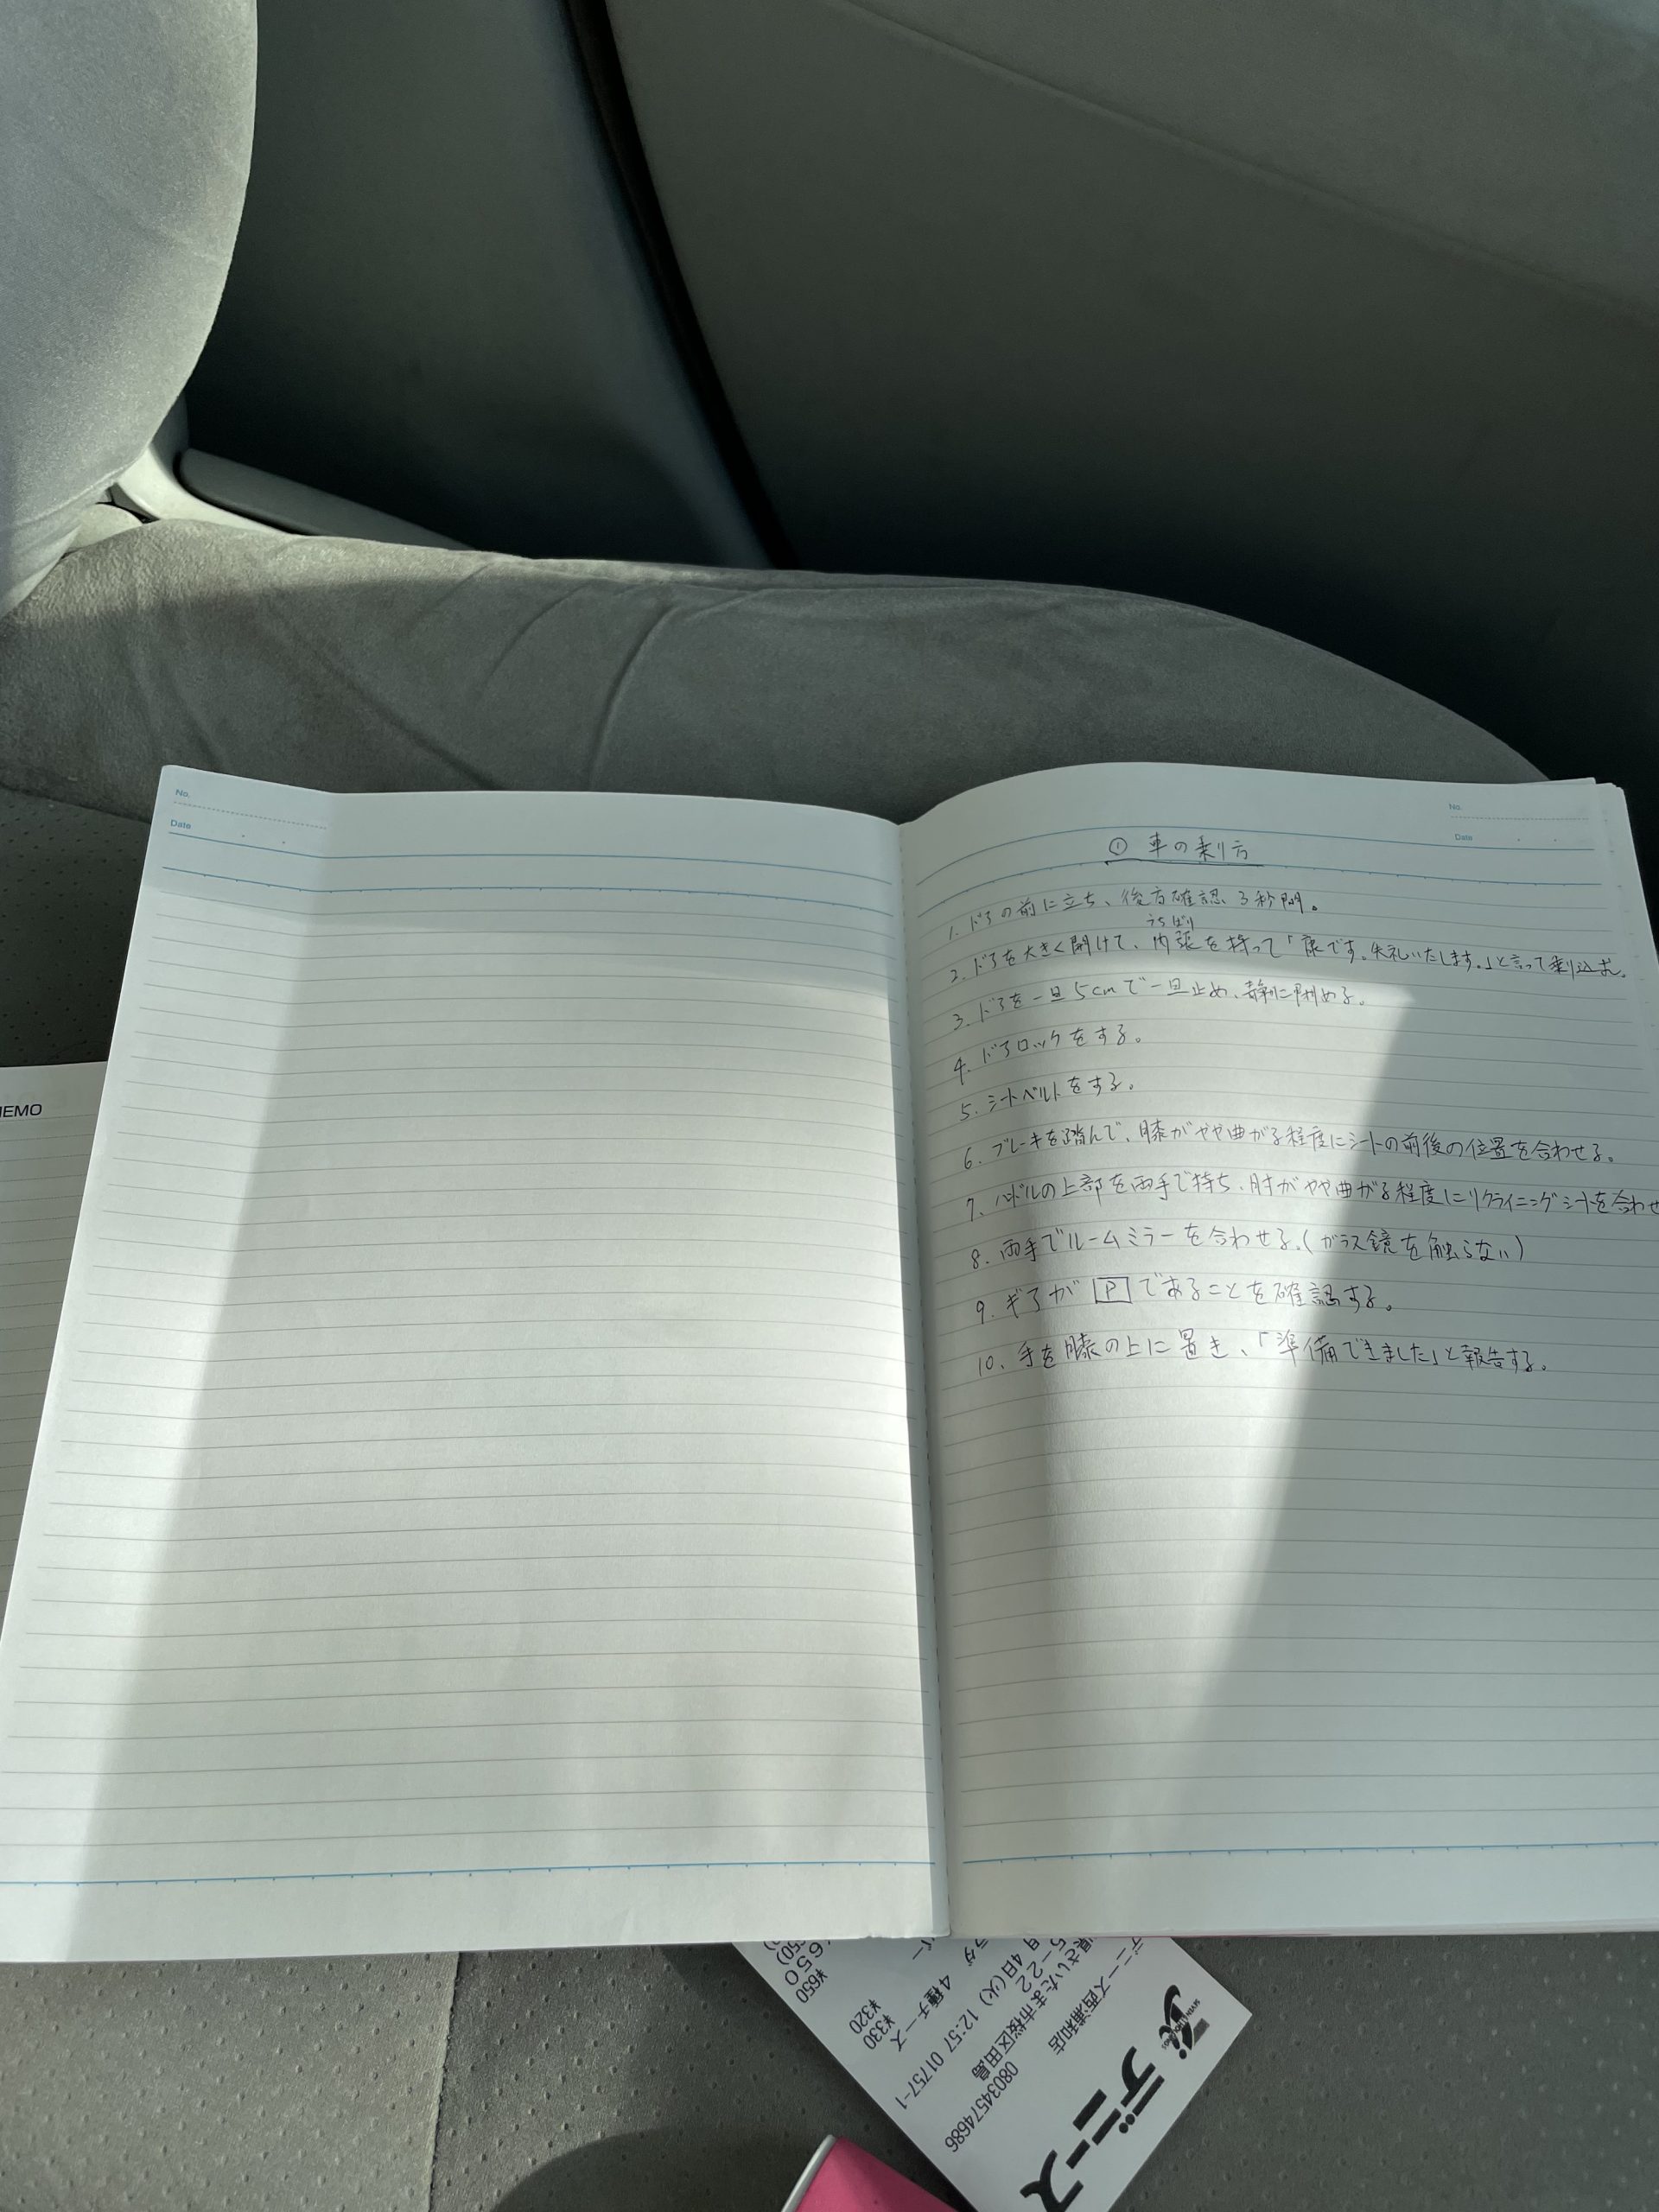 No.
Date
No.
Date
① 車の乗り方
1. ドアの前に立ち、後方確認 3秒間。
うちばり
2. ドアを大きく開けて、内張を持って「康です。失礼いたします。」と言って乗り込む。
3. ドアを一旦5cmで一旦止め、静に閉める。
4. ドアロックをする。
5. シートベルトをする。
6. ブレーキを踏んで、膝がやや曲がる程度にシートの前後の位置を合わせる。
7. ハンドルの上部を両手で持ち、肘がやや曲がる程度にリクライニングシートを合わせ
8. 両手でルームミラーを合わせる。(ガラス鏡を触らない)
9. ギアが P であることを確認する。
10. 手を膝の上に置き、「準備できました」と報告する。
EMO
デニーズ
デニーズ西浦和店
県さいたま市桜区田島
5-22 08034574686
月 4日(火) 12:57 01757-1
ラダ 4種チーズ
バー ¥330
¥320
650 ¥650